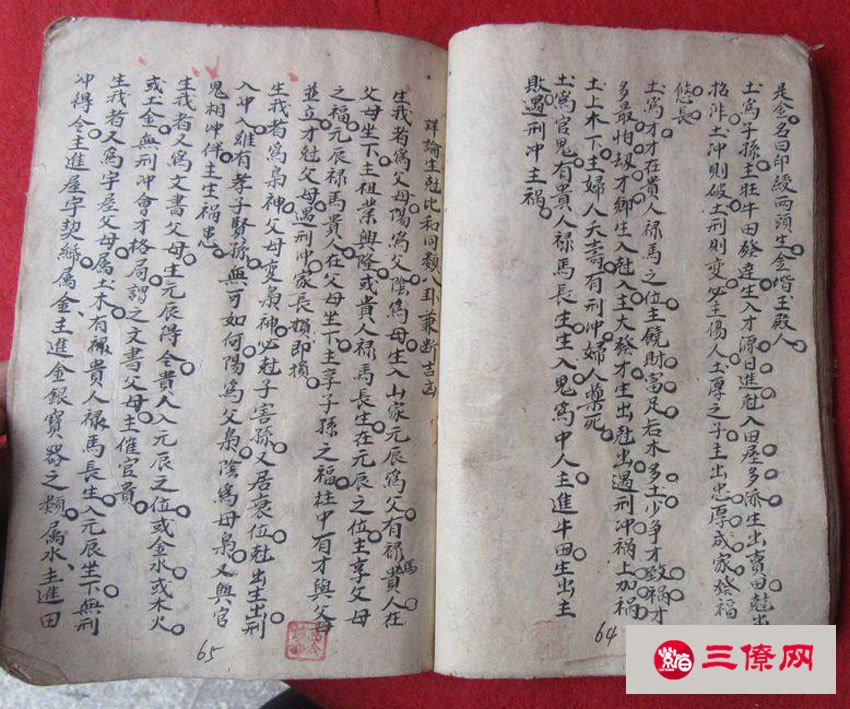 是金名曰印綬两頭生金堦玉殿人
土為子孫主旺牛田發達生入才源日進尅入田屋多添生出賣田尅出
招非土冲則破土刑則变必主傷人土厚之子主出忠厚成家發福
悠長
土為才才在貴人禄馬之位主饒財富足若木多土少争才致禍才
多最怕刼才鄉生入尅入主大發才生出尅出遇刑冲禍上加禍
土上木下主婦人夭壽有刑冲婦人藥死
土為官鬼有貴人禄馬長生生入鬼為中人主進牛田生出主
敗遇刑冲主禍
64
詳論生尅比和同類八卦兼断吉凶
生我者為父母陽為父陰為母生入山家元辰為父有禄馬貴人在
父母坐下主祖業興隆或貴人禄馬長生在元辰之位主享父母
之福元辰禄馬貴人在父母坐下主享子孫之福柱中有才與父母
並立才尅父母遇刑冲家長損即損
生我者為梟神父母变梟神必尅子害孫又居衰位尅出生出刑
入冲入雖有孝子賢孫無可如何陽為父梟陰為母梟又與官
鬼相冲伴主生禍患
生我者又為文書父母生元辰得令貴人入元辰之位或金水或木火
或土金無刑冲會才格局謂之文書父母主催官貴
生我者又為字屋父母属土木有禄貴人禄馬長生入元辰坐下無刑
冲得令主進屋字契縣属金主進金銀寶器之類属水主進田
65
三僚网